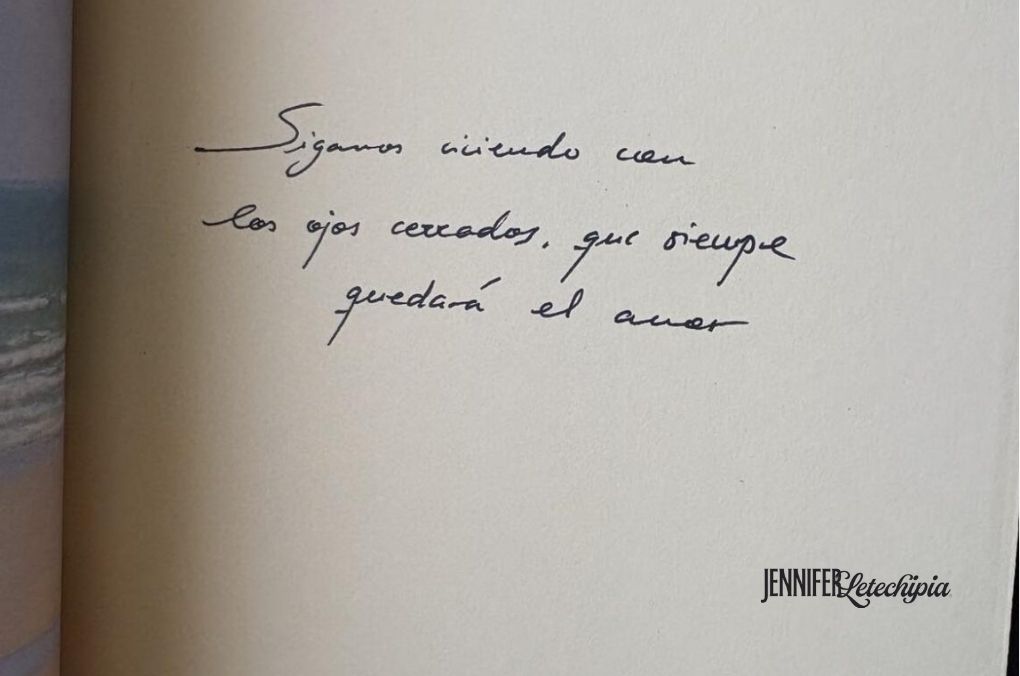 Sigamos viviendo con
los ojos cerrados, que siempre
quedará el amor
JENNIFER Letechipia